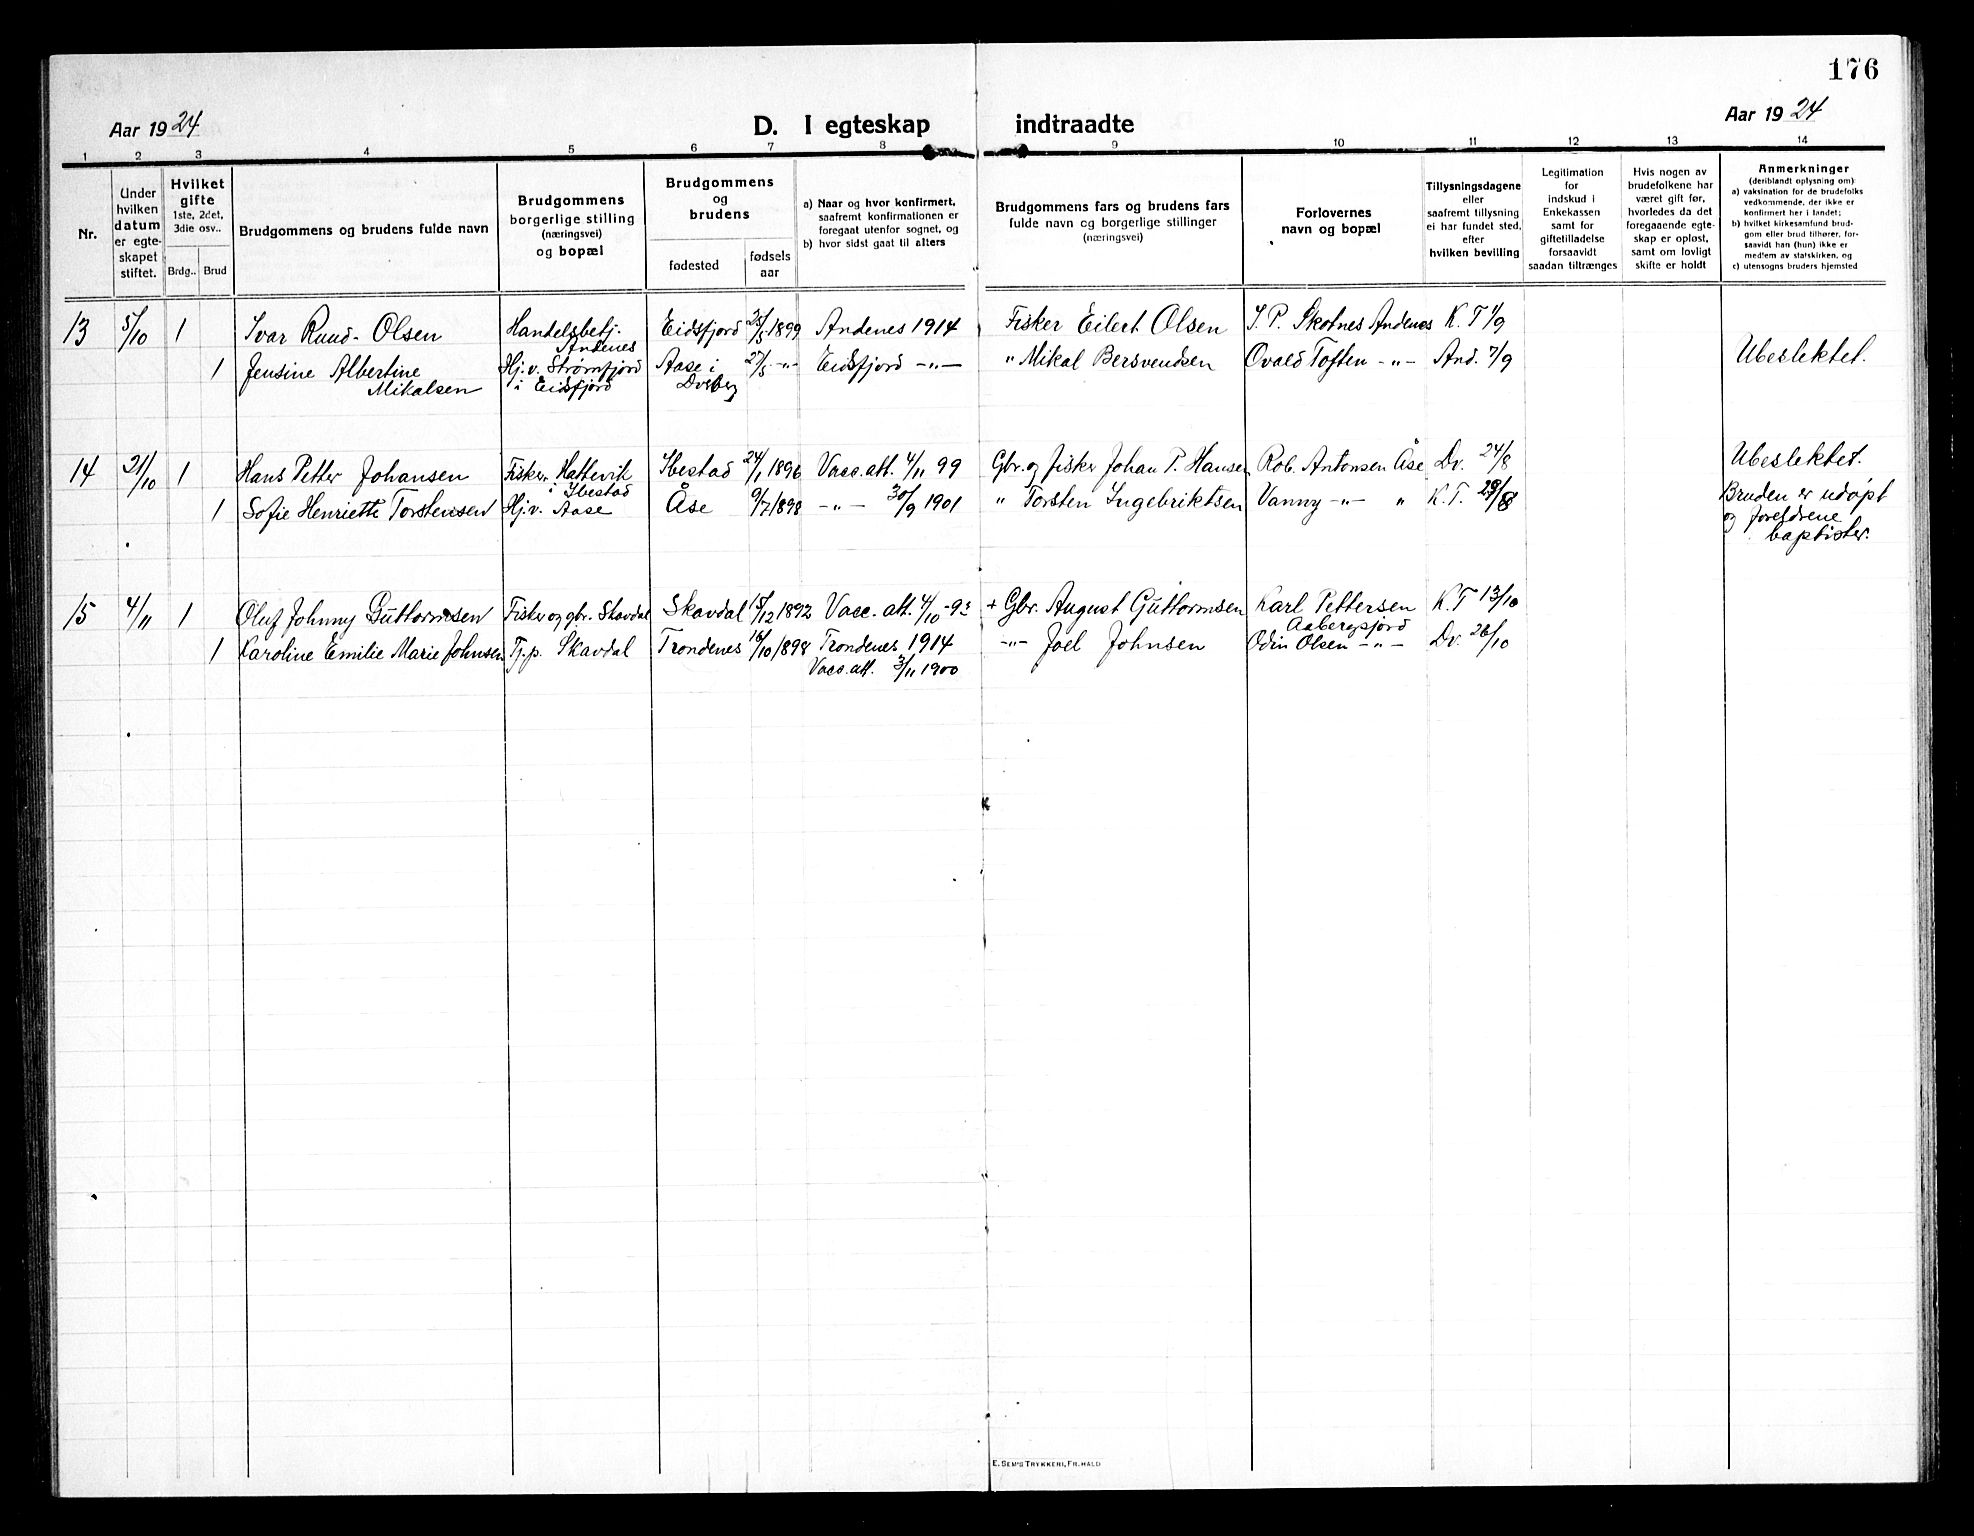 176
Aar 1924
D. I egteskap indtraadte
Aar 1924
1 2 3 4 5 6 7 8 9 10 11 12 13 14
Nr.
Under hvilken datum er egteskapet stiftet.
Hvilket gifte
1ste, 2det, 3die osv..
Brdg.. Brud
Brudgommens og brudens fulde navn
Brudgommens borgerlige stilling (næringsvei) og bopæl
Brudgommens og brudens
fødested
fødselsaar
a) Naar og hvor konfirmert, saafremt konfirmationen er foregaat utenfor sognet, og
b) hvor sidst gaat til alters
Brudgommens fars og brudens fars fulde navn og borgerlige stillinger (næringsvei)
Forlovernes navn og bopæl
Tillysningsdagene eller saafremt tillysning ei har fundet sted, efter hvilken bevilling
Legitimation for indskud i Enkekassen samt for giftetilladelse forsaavidt saadan tiltrænges
Hvis nogen av brudefolkene har været gift før, hvorledes da det foregaaende egteskap er opløst, samt om lovligt skifte er holdt
Anmerkninger
(deriblandt oplysning om)
a) vaksination for de brudefolks vedkommende, der ikke er konfirmert her i landet;
b) hvilket kirkesamfund brudgom eller brud tilhører, forsaavidt han (hun) ikke er medlem av statskirken, og
c) utensogns bruders hjemsted
13 5/10 1 Ivar Ruud-Olsen Handelsbetj. Andenes Eidsfjord 25/5 1899 Andenes 1914 Fisker Eilert Olsen J. P. Skotnes Andenes K. T 1/9
1 Jensine Albertine Mikalsen Hj.v. Strømfjord i Eidsfjord Aase i Dverberg 27/5 -"- Eidsfjord -"- " Mikal Bersvendsen Ovald Toften -"- And. 7/9 Ubeslektet.
14 21/10 1 Hans Petter Johansen Fisker, Hattevik i Ibestad Ibestad 24/1 1896 Vacc. att. 4/11 99 Gbr. og fisker Johan P. Hansen Rob. Antonsen Åse Dv. 24/8 Ubeslektet.
1 Sofie Henriette Torstensen Hj.v. Aase Åse 9/7 1898 -"- 30/9 1901 " Torsten Ingebriktsen Vanny -"- " K. T. 29/8 Bruden er udøpt
og foreldrene
baptister.
15 4/11 1 Oluf Johnny Guttormsen Fisker og gbr. Skavdal Skavdal 15/12 1892 Vacc. att. 4/10 -93 + Gbr. August Guttormsen Karl Pettersen Aabergsjord K.T 13/10
1 Karoline Emilie Marie Johnsen Tj.p. Skavdal Trondenes 16/10 1898 Trondenes 1914 -"- Joel Johnsen Odin Olsen -"- Dv. 26/10
Vacc. att. 3/11 1900
E. SEM'S TRYKKERI, FR.HALD